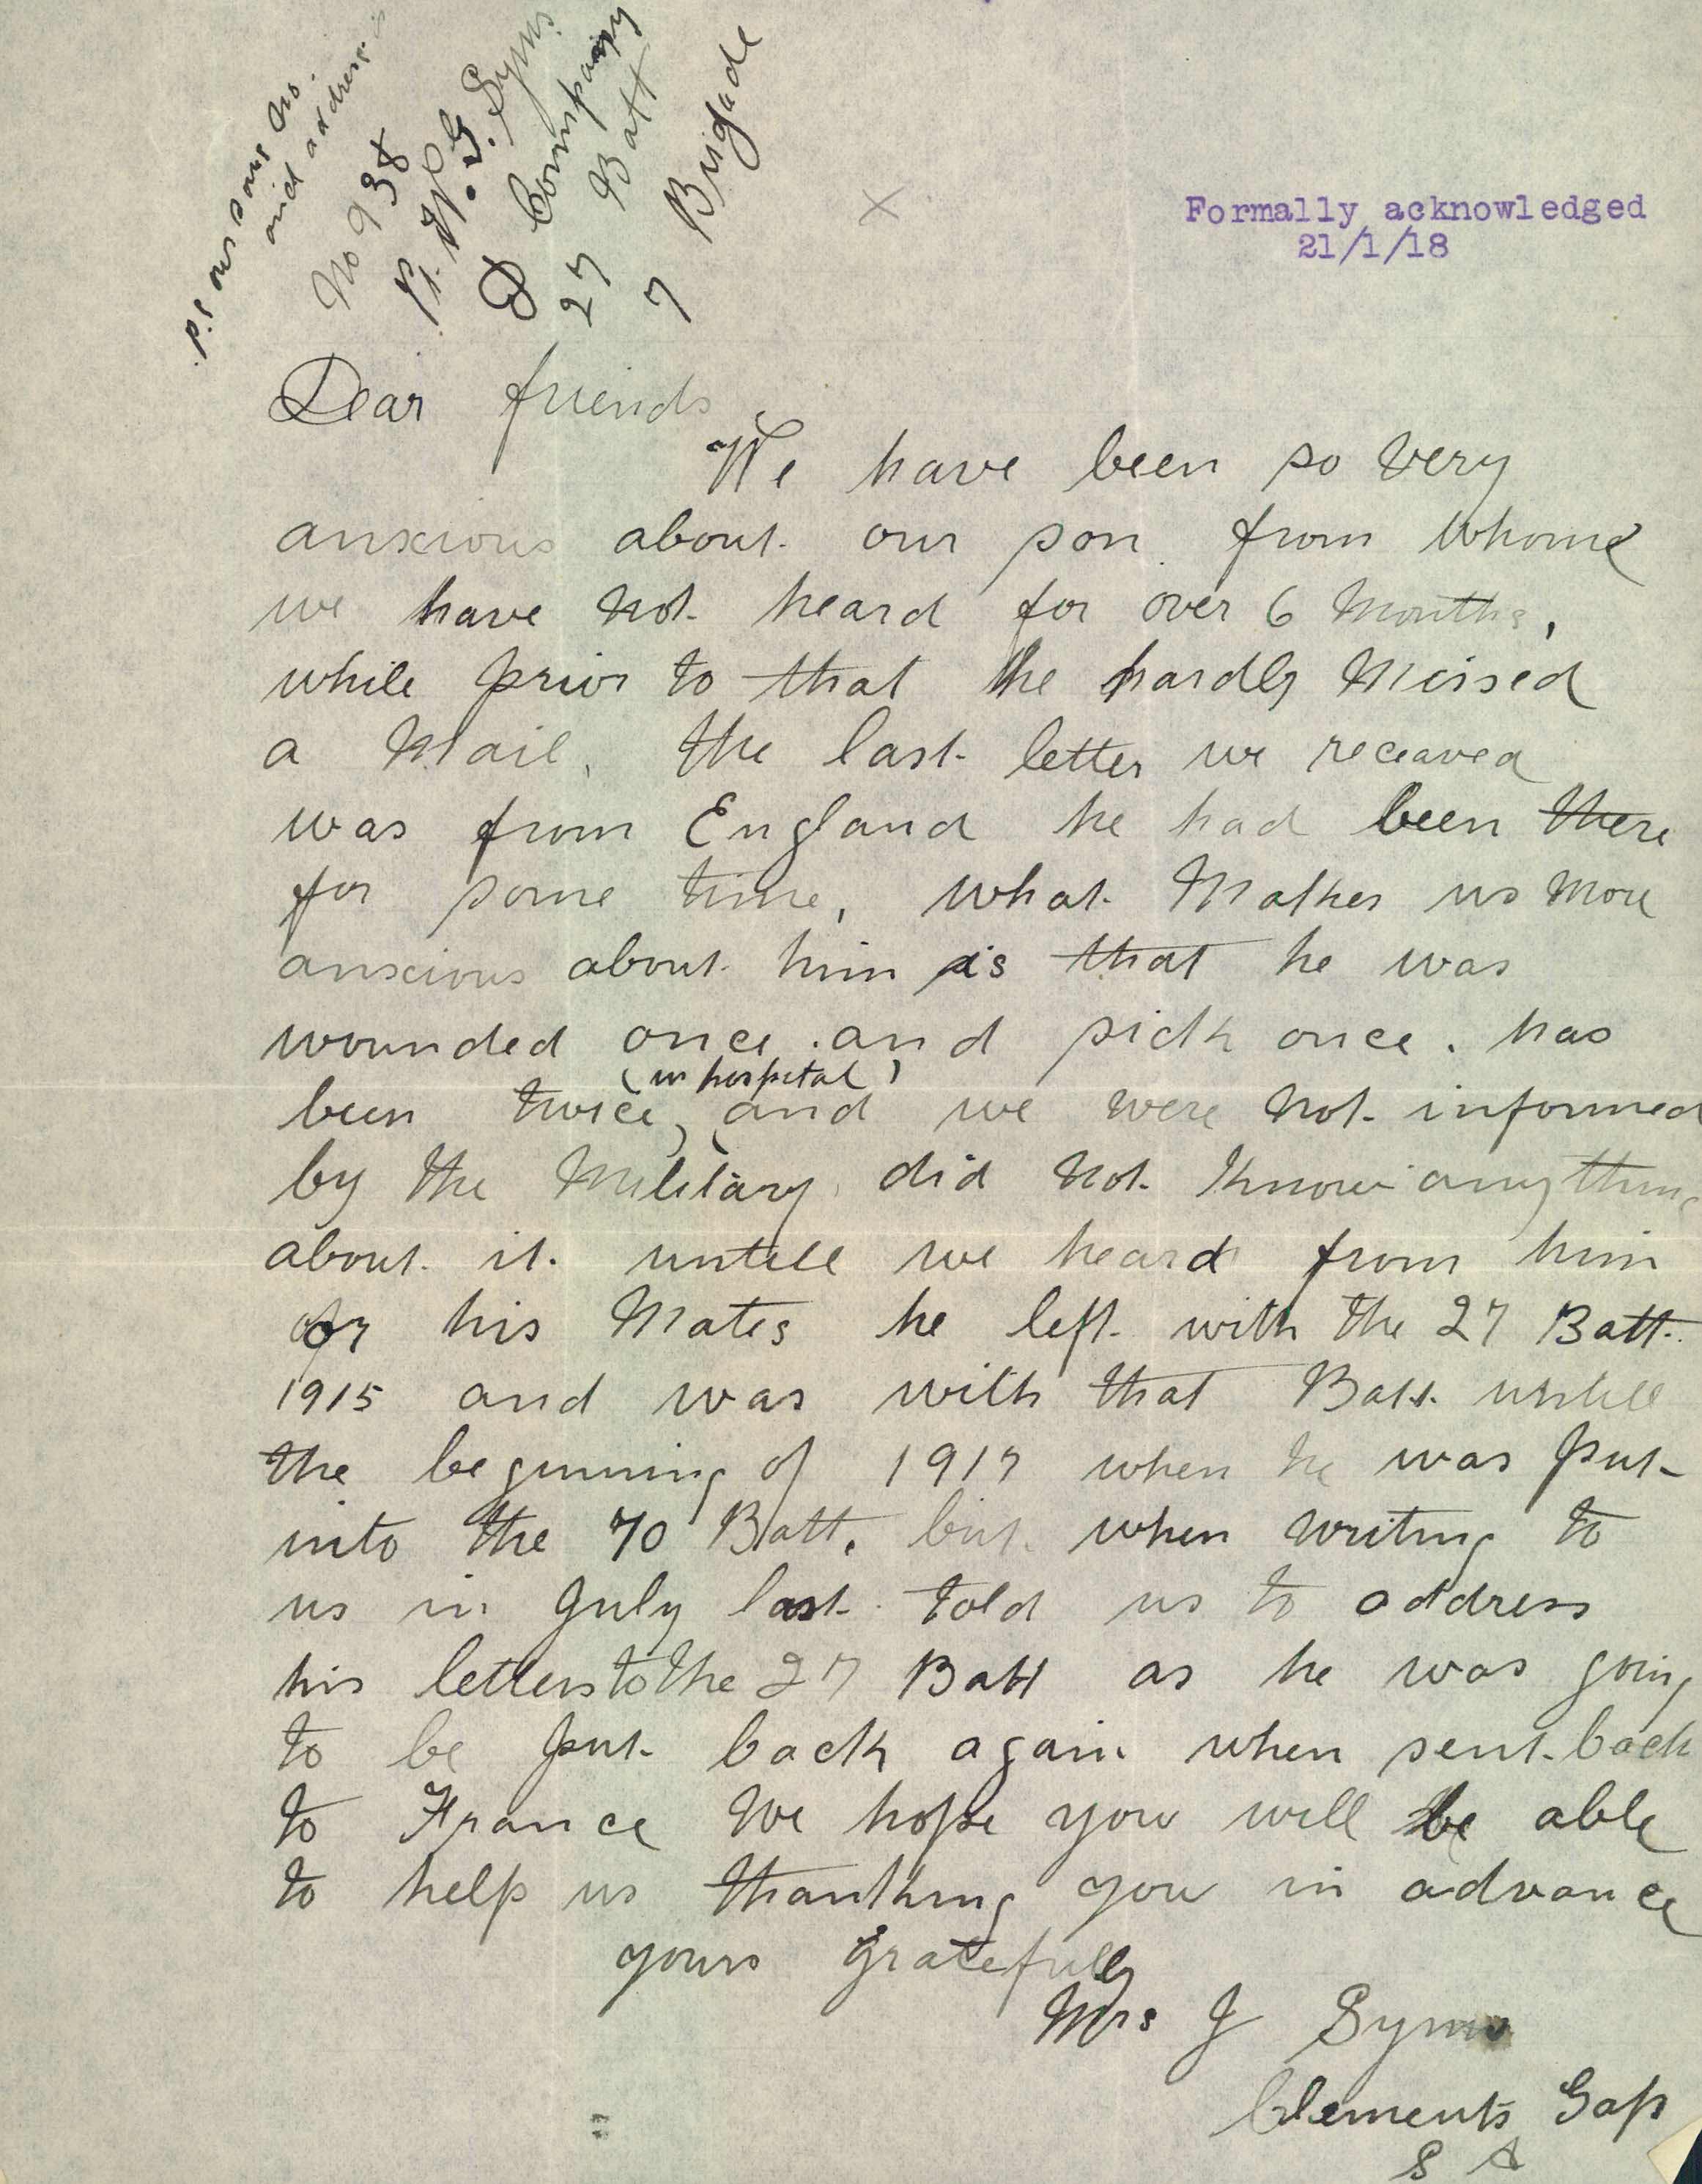 P.S our sons no.
and address is
No 938
Pt. W. G. Syms
D Company
27 Batt
7 Brigade
Formally acknowledged
21/1/18
Dear friends
We have been so very
anxious about our son from whome
we have not heard for over 6 Months,
while prior to that he hardly Missed
a Mail, the last letter we receaved
was from England he had been there
for some time, what Makes us More
anxious about him is that he was
wounded once and sick once. has
(in hospital)
been twice, and we were not informed
by the Military did not know anything
about it untill we heard from him
or his Mates he left with the 27 Batt.
1915 and was with that Batt. untill
the beginning of 1917 when he was put
into the 70 Batt. but when writing to
us in July last told us to address
his letters to the 27 Batt as he was going
to be put back again when sent back
to France We hope you will be able
to help us thanking you in advance
yours gratefully
Mrs J Syms
Clements Gap
S A